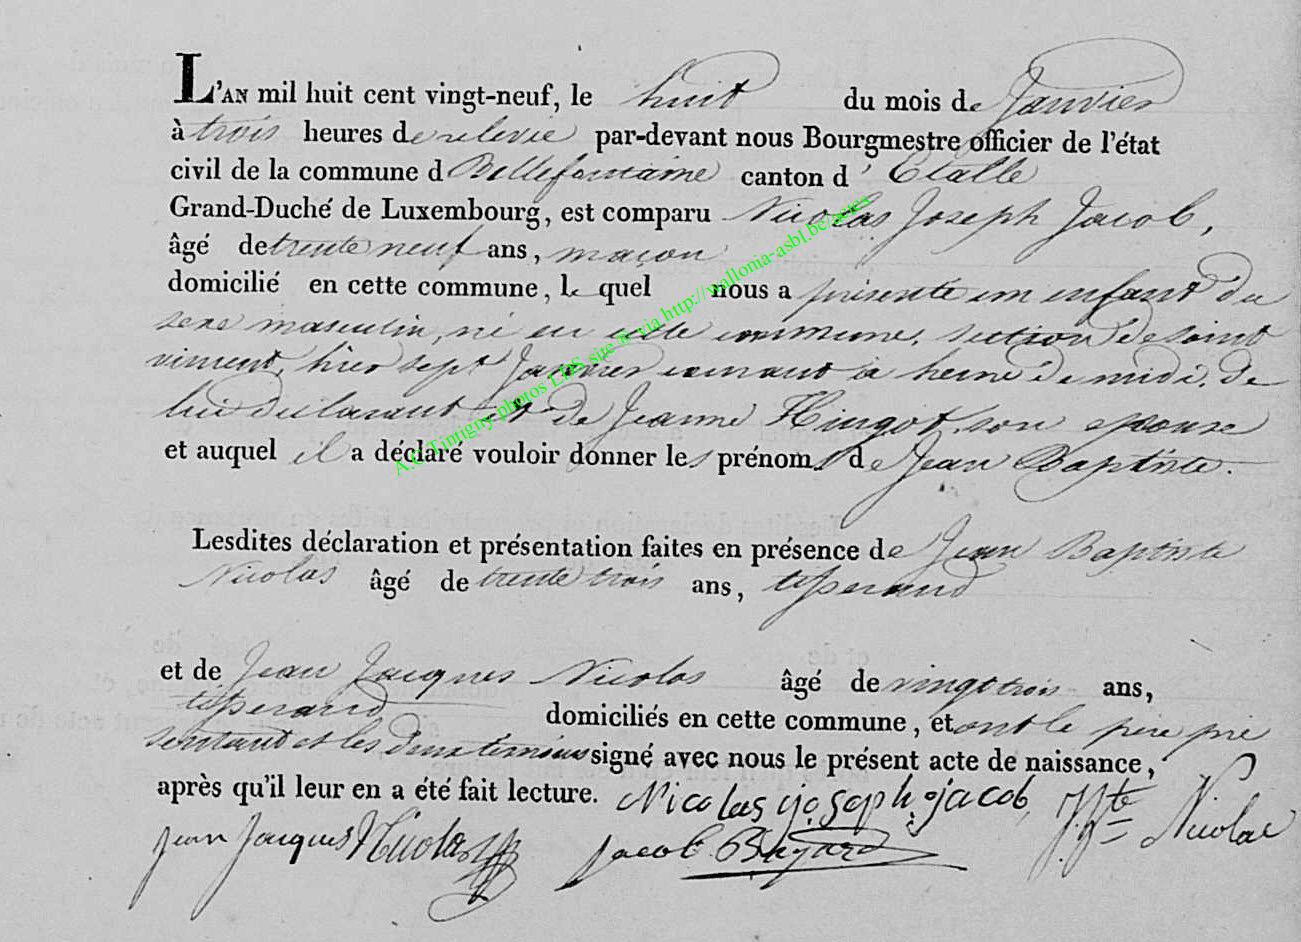 L'AN mil huit cent vingt-neuf, le huit du mois de Janvier
à trois heures de relevie par-devant nous Bourgmestre officier de l'état
civil de la commune d Bellefontaine canton d' Etalle
Grand-Duché de Luxembourg, est comparu Nicolas Joseph Jacob,
âgé de trente neuf ans, maçon
domicilié en cette commune, le quel nous a présenté un enfant du
sexe masculin, né en cette commune, section de Saint
vincent, hier sept Janvier courant à heure de midi, de
lui déclarant et de Jeanne Hingot, son epouse
et auquel il a déclaré vouloir donner les prénoms de Jean Baptiste.
Lesdites déclaration et présentation faites en présence de Jean Baptiste
Nicolas âgé de trente trois ans, tisserand
et de Jean Jacques Nicolas âgé de vingt trois ans,
tisserand domiciliés en cette commune, et ont le pere pré
sentant et les deux témoins signé avec nous le présent acte de naissance,
après qu'il leur en a été fait lecture. Nicolas joseph jacob, J. Bte Nicolas
jean jacques Nicolas Jacob
A.C Tintigny photos LDS site & via http://walloma-asbl.be/actes